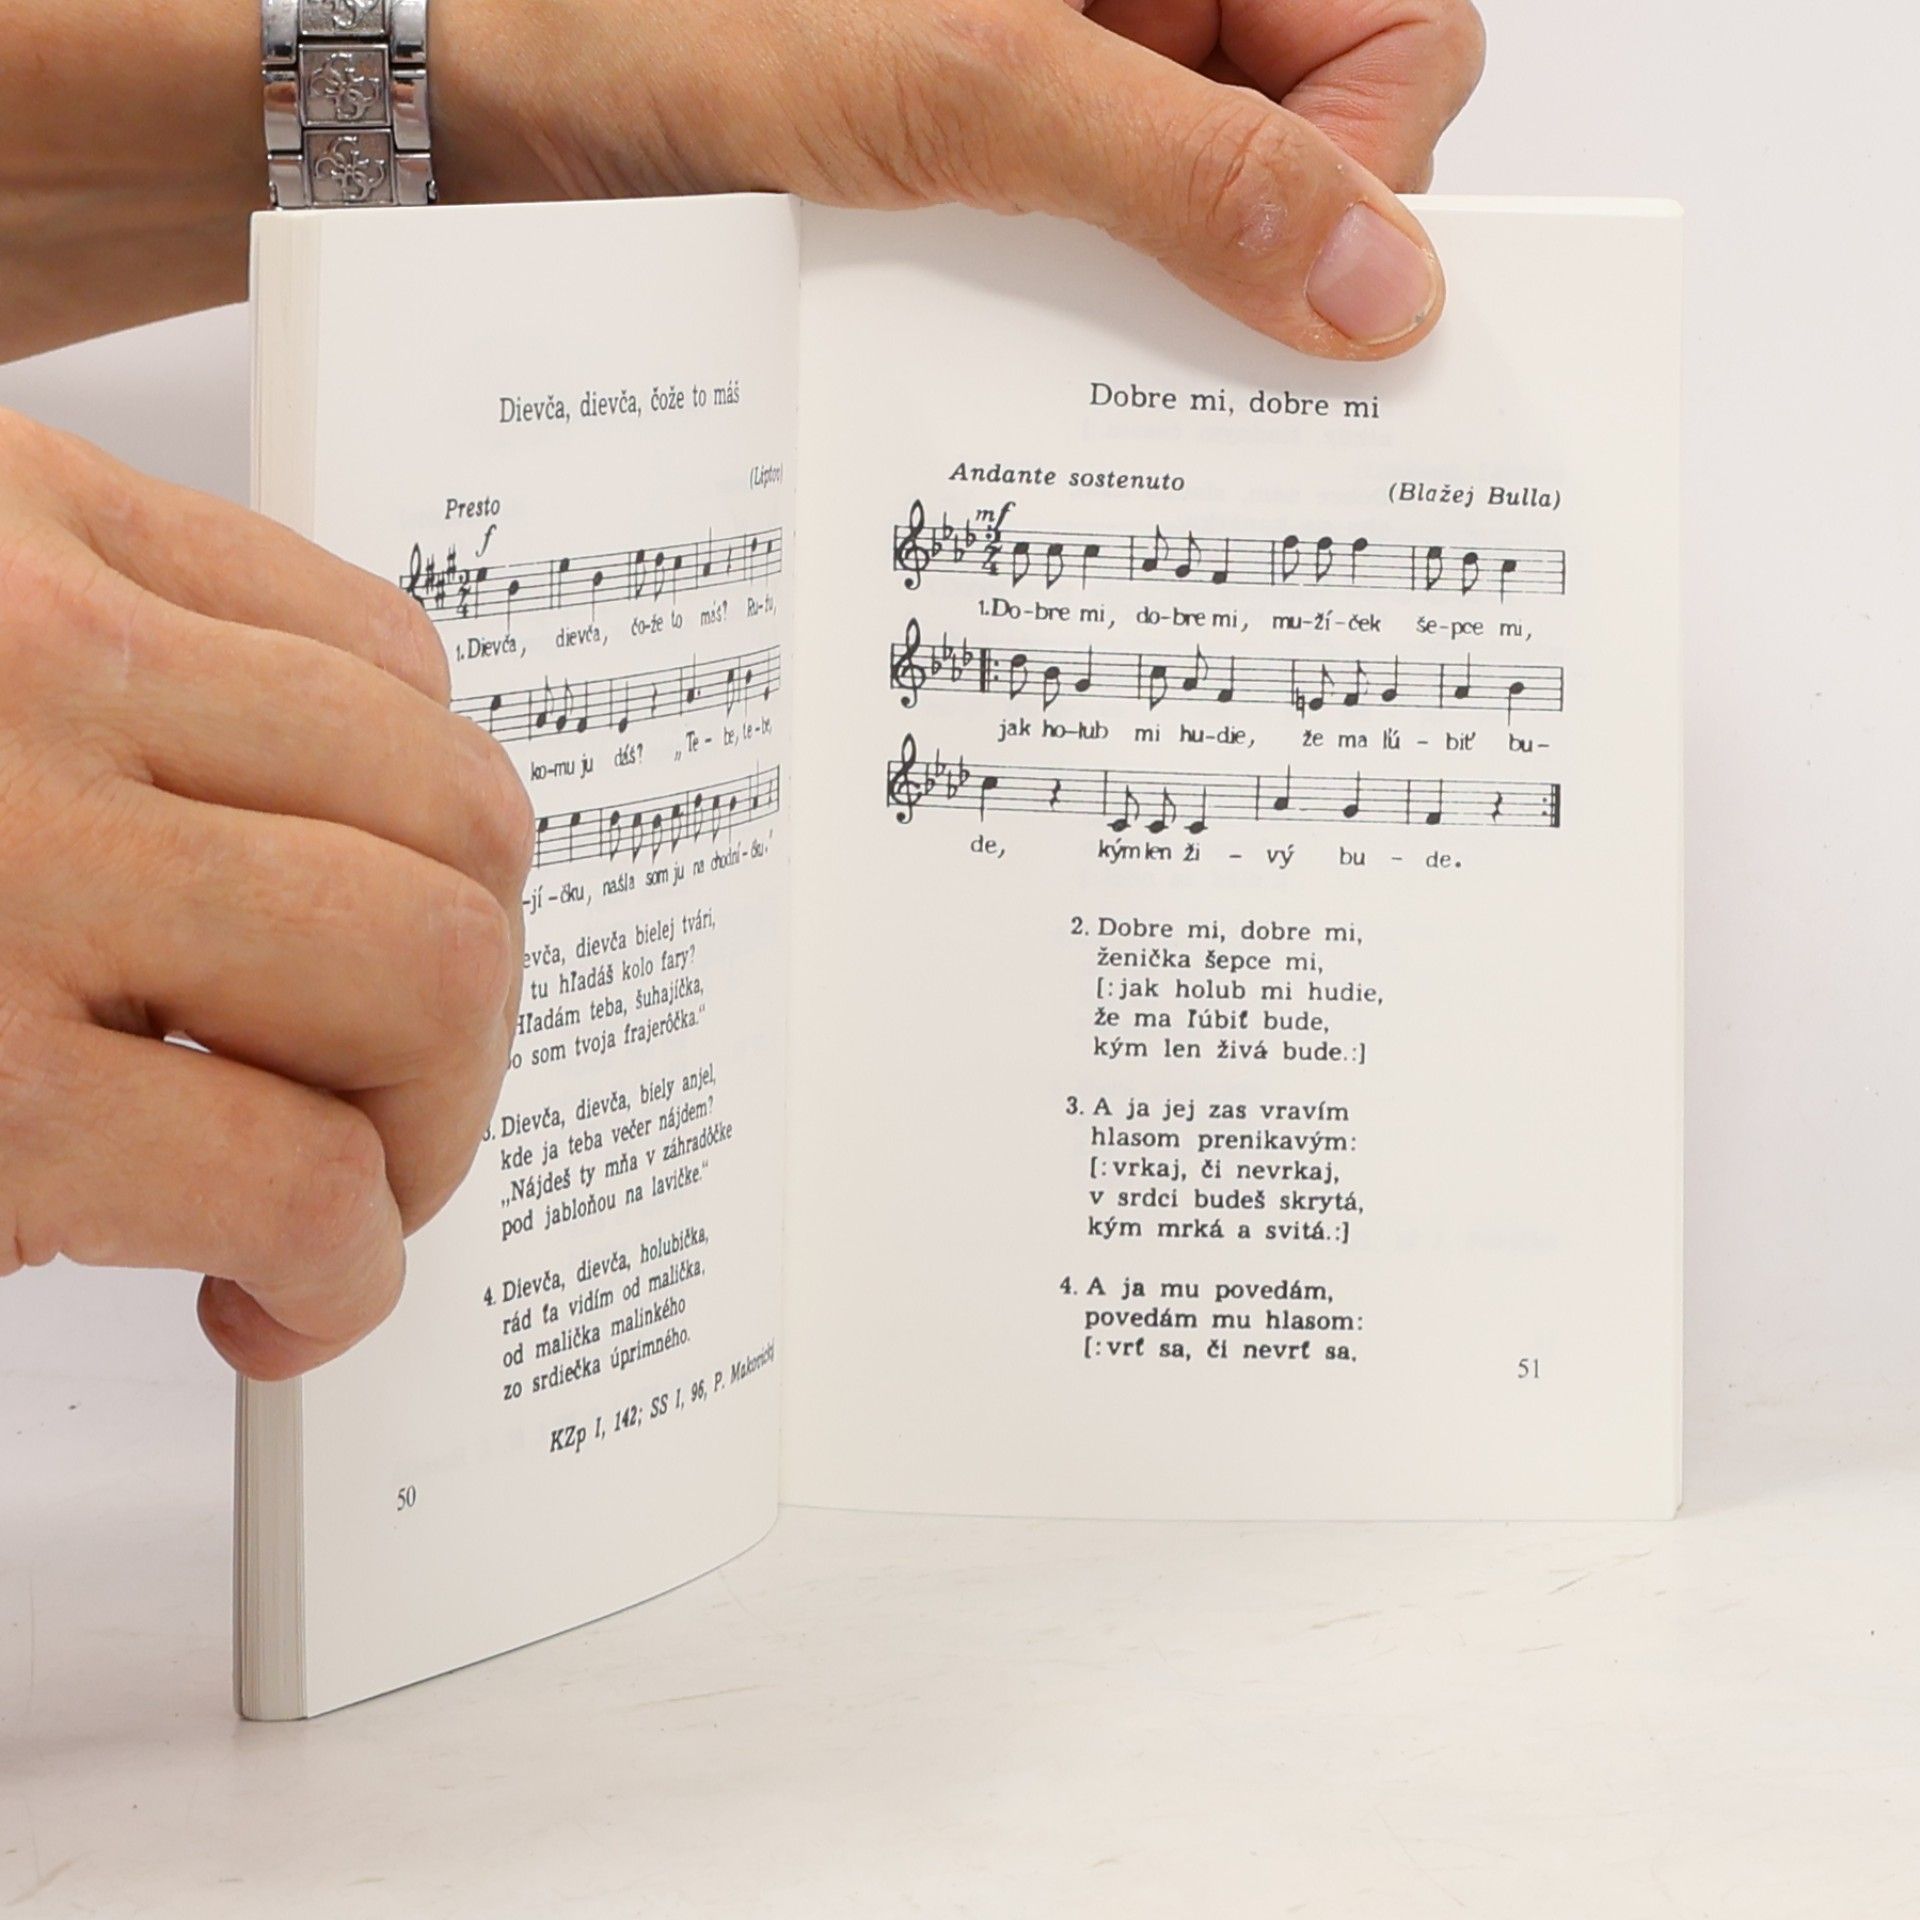 Dievča, dievča, čože to máš
(Liptov)
Presto
f
1. Dievča, dievča, čo-že to máš? Ru-žu,
ko-mu ju dáš? „Te - be, te-be,
-jí-čku, našla som ju na chodní-čku."
evča, dievča bielej tvári,
tu hľadáš kolo fary?
Hľadám teba, šuhajíčka,
o som tvoja frajerôčka."
3. Dievča, dievča, biely anjel,
kde ja teba večer nájdem?
„Nájdeš ty mňa v záhradôčke
pod jabloňou na lavičke."
4. Dievča, dievča, holubička,
rád ťa vidím od malička,
od malička malinkého
zo srdiečka úprimného.
KZp I, 142; SS I, 96, P. Makovický
50
Dobre mi, dobre mi
Andante sostenuto
(Blažej Bulla)
mf
2
4
1. Do-bre mi, do-bre mi, mu-ží-ček še-pce mi,
jak ho-lub mi hu-die, že ma ľú - biť bu-
de, kým len ži - vý bu - de.
2. Dobre mi, dobre mi,
ženička šepce mi,
[:jak holub mi hudie,
že ma ľúbiť bude,
kým len živá bude.:]
3. A ja jej zas vravím
hlasom prenikavým:
[:vrkaj, či nevrkaj,
v srdci budeš skrytá,
kým mrká a svitá.:]
4. A ja mu povedám,
povedám mu hlasom:
[:vrť sa, či nevrť sa,
51